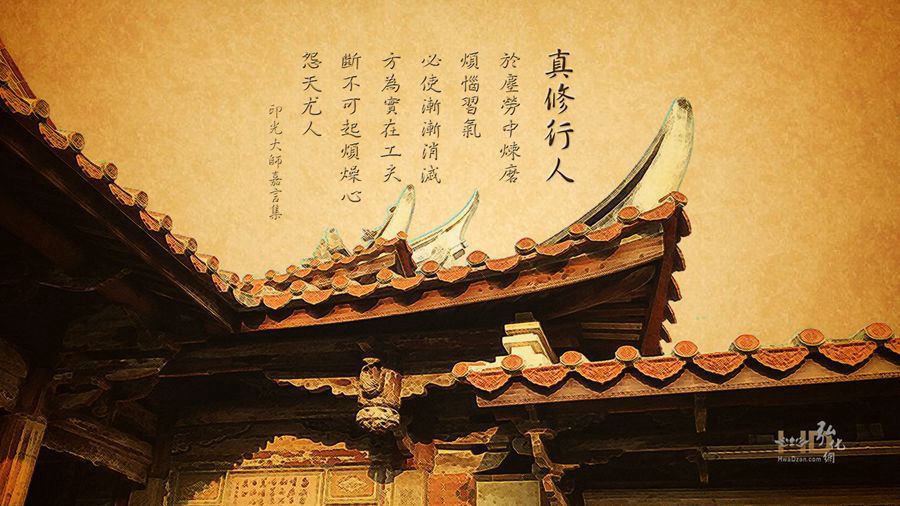 真修行人
於塵勞中煉磨
煩惱習氣
必使漸漸消滅
方為實在工夫
斷不可起煩燥心
怨天尤人
印光大師嘉言集
HwaDzan.com